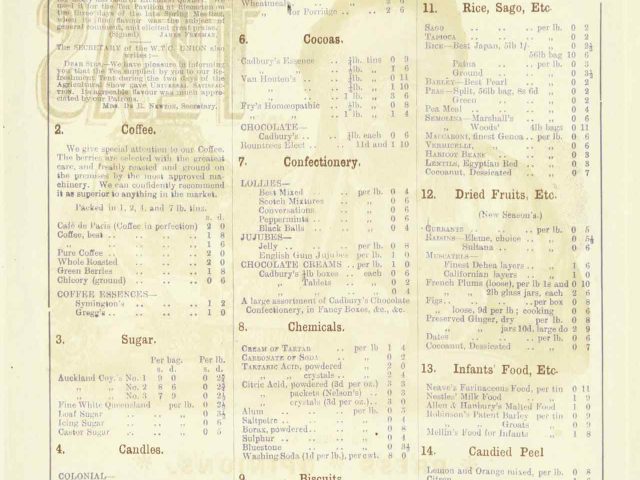 used for the Tea Pavilion at Blenheim on
the three days of the late Spring Meeting,
when its fine flavour was the subject of
general comment, and elicited praise.
The SECRETARY of the W.T.C. UNION also
writes:—
DEAR SIRS—We have pleasure in informing
you that the Tea supplied by you to our Re-
freshment Tent during the two days of the
Agricultural Show gave UNIVERSAL SATISFAC-
TION. Its agreeable flavour was much appre-
ciated by our Patrons.
NEWTON, Secretary.
2. Coffee.
We give special attention to our Coffee.
The berries are selected with the greatest
care, and freshly roasted and ground on
the premises by the most approved ma-
chinery. We can confidently recommend
it as superior to anything in the market.
Packed in 1, 2, 4, and 7 lb. tins.
s. d.
Café de Paris (Coffee in perfection) 2 0
Coffee, best .. .. .. ,, 1 8
,, .. .. .. ,, 1 6
Pure Coffee .. .. .. ,, 2 0
Whole Roasted .. .. ,, 2 0
Green Berries .. .. ,, 1 8
Chicory (ground) .. .. ,, 0 6
COFFEE ESSENCES—
Symington's .. .. ,, 1 2
Gregg's .. .. .. ,, 1 0
3. Sugar.
Per bag. Per lb.
s. d. s. d.
Auckland Coy.'s No. 1 9 0
,, ,, No. 2 8 6
,, ,, No. 3 7 9
Fine White Queensland per lb.
Loaf Sugar .. .. ,,
Icing Sugar .. .. ,, 0 6
Castor Sugar .. .. ,, 0 5
4. Candles.
COLONIAL—
Wheatmeal
for Porridge .. 2 6
6. Cocoas.
Cadbury's Essence ¼lb. tins 0 9
,, ,, ½lb. ,, 1 8
Van Houten's ¼lb. ,, 0 11
,, ½lb. ,, 1 10
,, 1 lb. ,, 3 6
Fry's Homœopathic ½ lb. ,, 0 8
,, 1 lb. ,, 1 4
CHOCOLATE—
Cadbury's .. ¼lb. each 0 6
Rountrees Elect .. 11d and 1 10
7. Confectionery.
LOLLIES—
Best Mixed .. .. per lb. 0 4
Scotch Mixtures .. ,, 0 6
Conversations .. ,, 0 6
Peppermints .. ,, 0 6
Black Balls .. .. ,, 0 4
JUJUBES—
Jelly .. .. .. per lb. 0 8
English Gum Jujubes per lb. 1 0
CHOCOLATE CREAMS .. per lb. 1 0
Cadbury's ¼lb boxes .. each 0 6
,, Tablets ,, 0 2
,, ,, 0 4
A large assortment of Cadbury's Chocolate
Confectionery, in Fancy Boxes, &c., &c.
8. Chemicals.
CREAM OF TARTAR .. per lb 1 4
CARBONATE OF SODA .. ,, 0 2
TARTARIC ACID, powdered ,, 2 0
,, crystals .. ,, 2 4
Citric Acid, powdered (3d per oz.) 3 3
,, packets (Nelson's) .. 0 3
,, crystals (3d per oz.) .. 3 0
Alum .. .. per lb. 0 3
Saltpetre .. .. ,, 0 4
Borax, powdered .. ,, 0 8
Sulphur .. .. ,, 0 4
Bluestone .. .. ,,
Washing Soda (1d per lb.), per cwt. 8 0
9. Biscuits.
11. Rice, Sago, Etc.
SAGO .. .. .. per lb. 0 2
TAPIOCA .. .. ,, 0 2
RICE—Best Japan, 5lb 1/- ,, 0 2½
56lb bag 10 6
Patna .. per lb. 0 3
Ground .. ,, 0 3½
BARLEY—Best Pearl .. ,, 0 2
PEAS—Split, 56lb bag, 8s 6d ,, 0 2
Green .. .. ,, 0 2
Pea Meal .. .. ,, 0 4
SEMOLINA—Marshall's .. ,, 0 6
Woods' 4lb bags 0 11
MACCARONI, finest Genoa .. per lb. 0 6
VERMICELLI, ,, ,, 0 6
HARICOT BEANS .. ,, 0 3
LENTILS, Egyptian Red .. ,, 0 3
Cocoanut, Dessicated .. ,, 0 7
12. Dried Fruits, Etc.
(New Season's.)
CURRANTS .. .. per lb. 0 5
RAISINS—Eleme, choice .. ,, 0 5½
Sultana .. .. ,, 0 6
MUSCATELS—
Finest Dehea layers .. ,, 1 6
Californian layers .. ,, 1 0
French Plums (loose), per lb 1s and 0 10
,, 2lb glass jars, each 2 6
Figs .. .. per box 0 8
,, loose, 9d per lb ; cooking 0 6
Preserved Ginger, dry per lb. 0 8
,, jars 10d, large do 2 9
Dates .. .. per lb. 0 6
Cocoanut, Dessicated .. ,, 0 7
13. Infants' Food, Etc.
Neave's Farinaceous Food, per tin 0 11
Nestles' Milk Food .. ,, 1 9
Allen & Hanbury's Malted Food 1 0
Robinson's Patent Barley per tin 0 9
,, Groats ,, 0 9
Mellin's Food for Infants ,, 1 8
14. Candied Peel
Lemon and Orange mixed, per lb. 0 8
Citron